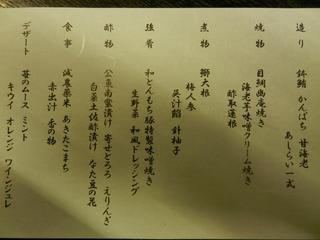 造り　鉢鮪　かんぱち　甘海老
あしらい一式
焼物　目鯛幽庵焼き
海老芋味噌クリーム焼き
酢取蓮根
煮物　鰤大根
梅人参
呉汁餡　針柚子
強肴　和とんもち豚特製味噌焼き
生野菜　和風ドレッシング
酢物　公魚南蛮漬け　寄せとろろ　えりんぎ
白菜土佐酢漬け　なた豆の花
食事　減農薬米　あきたこまち
赤出汁　香の物
デザート　苺のムース　ミント
キウイ　オレンジ　ワインジュレ